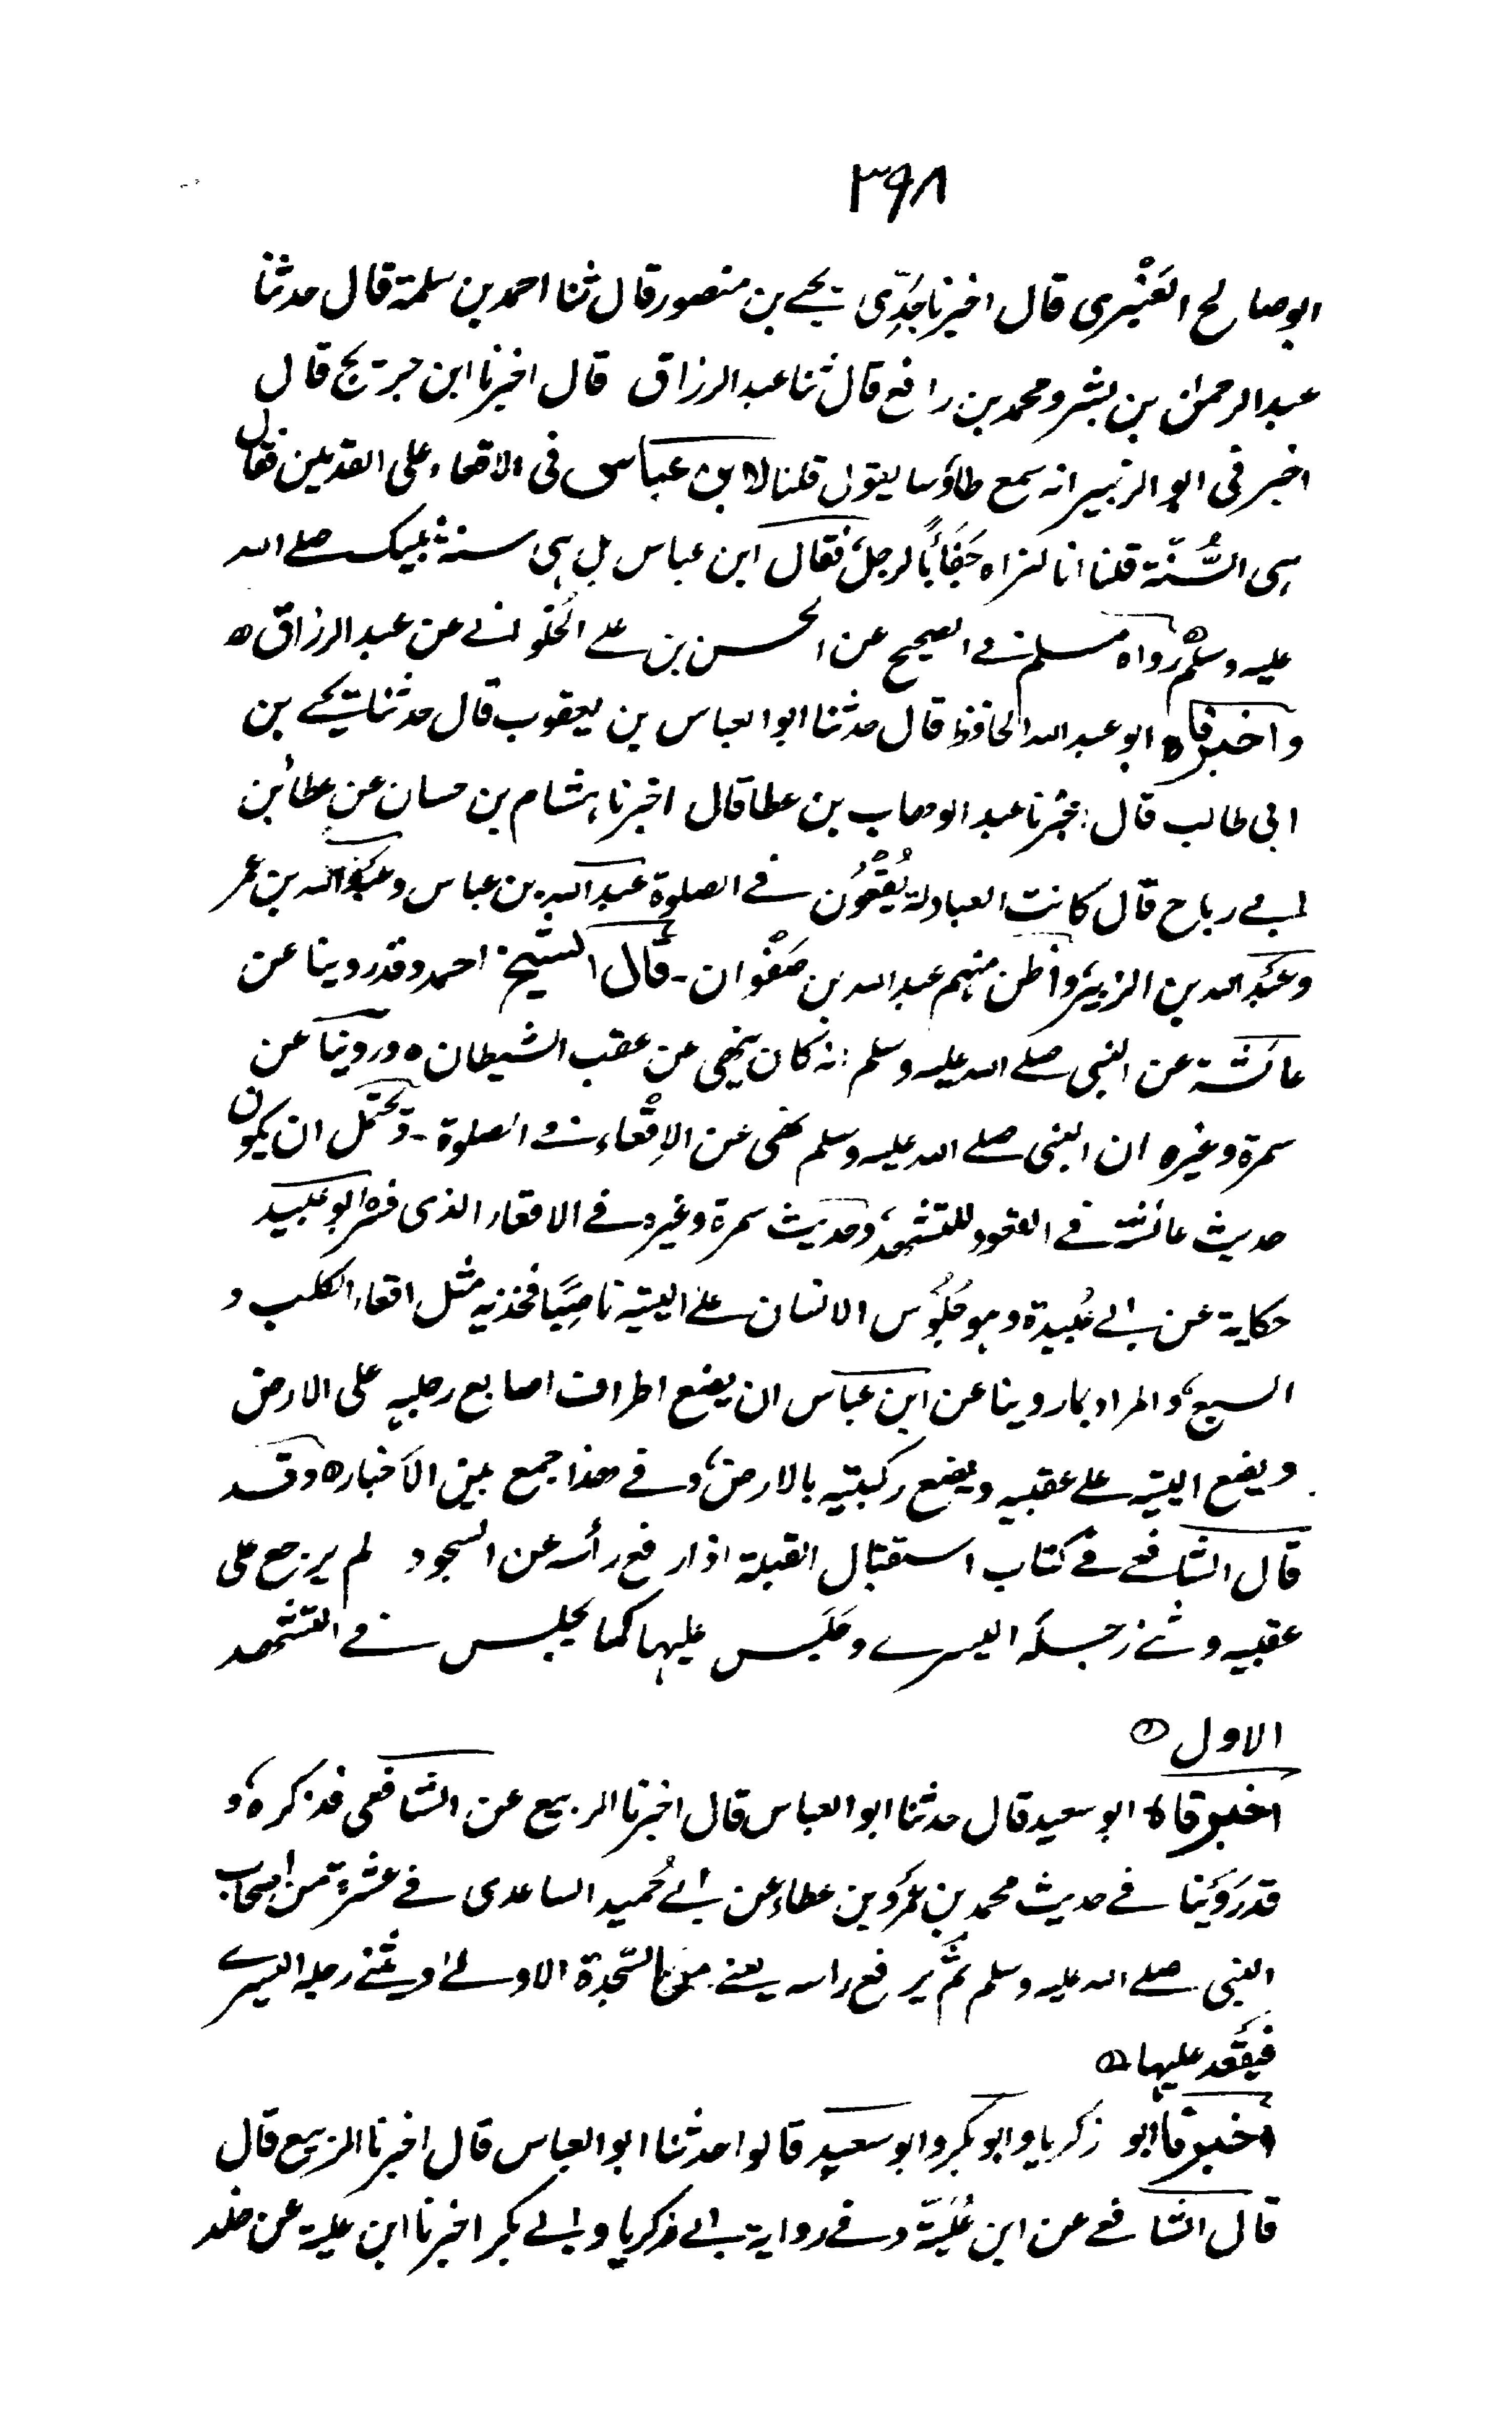 ۳۹۸
ابوصالح العَنْبَرى قال اخبرنا جَدِّى يحيے بن منصور قال ثنا احمد بن سلمة قال حدثنا
عبد الرحمٰن بن بشر ومحمد بن رافع قال ثنا عبد الرزاق قال اخبرنا ابن جريج قال
اخبرنى ابو الزبير انه سمع طاؤسا يقول قلنا لابن عباس فى الاقعاء على القدمين فقال
هى السُّنّة قلنا انا لنراه جَفَاءً بالرجل، فقال ابن عباس بل هى سنة نبيك صلے الله
عليه وسلم رواه مسلم فے الصحيح عن الحسن بن علے الحُلْوانے عن عبد الرزاق ه
واخبرناه ابو عبد الله الحافظ قال حدثنا ابو العباس بن يعقوب قال حدثنا يحيے بن
ابى طالب قال اخبرنا عبد الوهاب بن عطا قال اخبرنا هشام بن حسان عن عطاء بن
ابے رباح قال كانت العبادلة يُقْعُوْن فے الصلوة عبد الله بن عباس وعبد الله بن عمر
وعبد الله بن الزبير، واظن منهم عبد الله بن صَفْوان - قال الشيخ احمد وقد روينا عن
عائشة عن النبى صلے الله عليه وسلم انه كان ينهى عن عقب الشيطان ه وروينا عن
سمرة وغيره ان النبى صلے الله عليه وسلم نهى عن الاِقْعاء فے الصلوة - ويحتمل ان يكون
حديث عائشة فے القعود للتشهد، وحديث سمرة وغيره فے الاقعاء الذى فسره ابو عبيد
حكاية عن ابے عُبيدة وهو جُلُوس الانسان علے اليتيه ناصِبًا فخذيه مثل اقعاء الكلب و
السبع، والمراد بما روينا عن ابن عباس ان يضع اطراف اصابع رجليه على الارض
ويضع اليتيه علے عقبيه ويضع ركبتيه بالارض، وفے هذا جمع بين الاَخبار ه وقد
قال الشافعے فے كتاب استقبال القبلة اذا رفع رأسه عن السجود لم يرجع على
عقبيه وثنے رجله اليسرے وجَلَس عليها كما يجلس فے التشهد
الاول ه
اخبرناه ابو سعيد قال حدثنا ابو العباس قال اخبرنا الربيع عن الشافعى فذكره، و
قد رَوَينا فے حديث محمد بن عمرو بن عطاء عن ابے حُميد الساعدى فے عشرة من اصحاب
النبى صلے الله عليه وسلم ثم يرفع راسه يعنے من السّجدة الاولے ويثنے رجله اليسرے
فيقعد عليها ه
اخبرنا ابو زكريا وابو بكر وابو سعيد قالوا حدثنا ابو العباس قال اخبرنا الربيع قال
قال الشافعے عن ابن عُلَيّة وفے رواية ابے زكريا وابے بكر اخبرنا ابن علية عن خلد